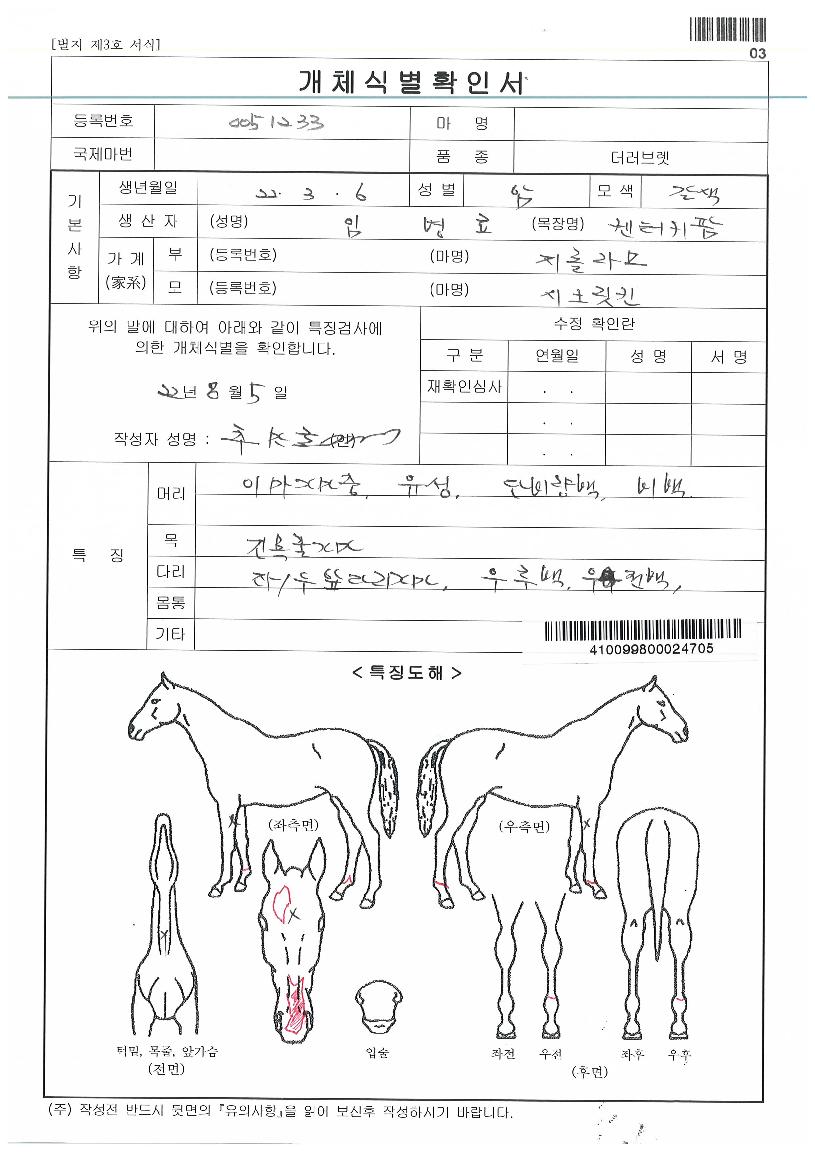 [별지 제3호 서식]
03
개체식별확인서
등록번호 0051233 마 명
국제마번 품 종 더러브렛
기본사항
생년월일 22. 3. 6 성별 암 모색 갈색
생산자 (성명) 임 병 효 (목장명) 켄터키팜
가계 (家系) 부 (등록번호) (마명) 지롤라모
모 (등록번호) (마명)
위의 말에 대하여 아래와 같이 특징검사에
의한 개체식별을 확인합니다.
22년 8월 5일
작성자 성명 : (인)
수정 확인란
구 분 연월일 성 명 서 명
재확인심사 . .
. .
. .
특 징
머리 이마 유성, 비백
목
다리 우후백,
몸통
기타
410099800024705
< 특징도해 >
(좌측면) (우측면)
턱밑, 목줄, 앞가슴 입술 좌전 우전 좌후 우후
(전면) (후면)
(주) 작성전 반드시 뒷면의 『유의사항』을 읽어 보신후 작성하시기 바랍니다.